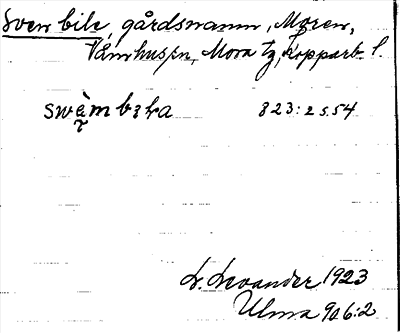 Sven bile, gårdsnamn, Moren,
Våmhus sn, Mora tg, Kopparb. l.
823:25.54
L. Levander 1923
Ulma 90.6:2